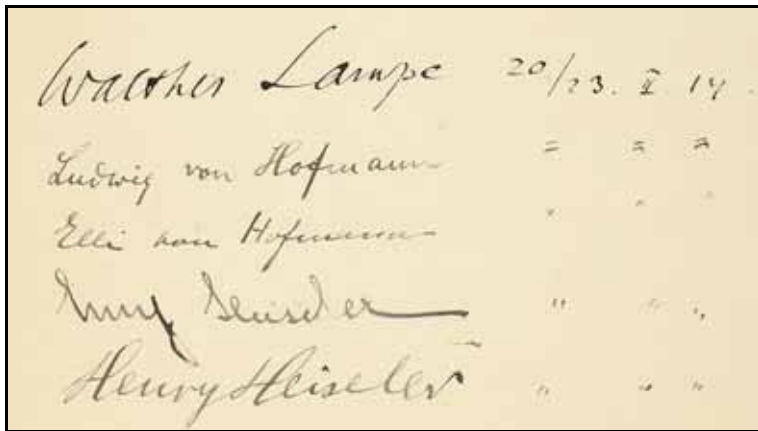 Walther Lampe 20/23. II 14.
Ludwig von Hofmann = = =
Elli von Hofmann " " "
Heiseler " " "
Henry Heiseler " " "